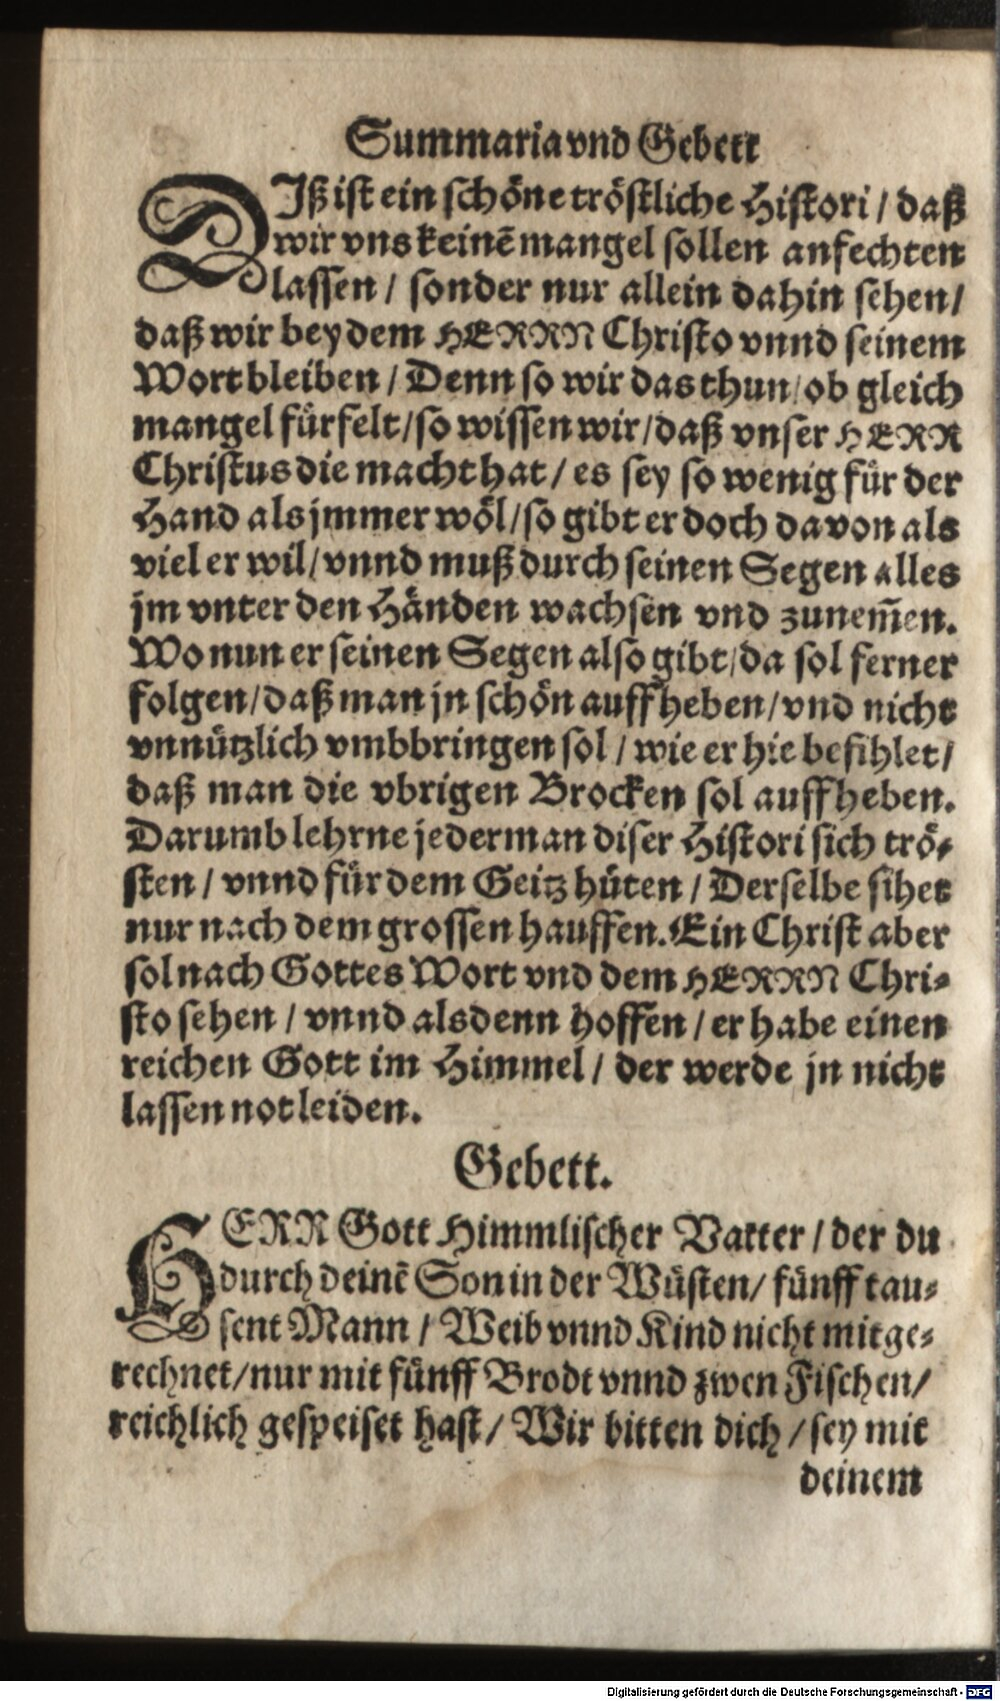 Summaria vnd Gebett
DIß ist ein schöne tröstliche Histori / daß
wir vns keinē mangel sollen anfechten
lassen / sonder nur allein dahin sehen /
daß wir bey dem HERRN Christo vnnd seinem
Wort bleiben / Denn so wir das thun / ob gleich
mangel fürfelt / so wissen wir / daß vnser HERR
Christus die macht hat / es sey so wenig für der
Hand als jmmer wöl / so gibt er doch davon als
viel er wil / vnnd muß durch seinen Segen alles
jm vnter den Händen wachsen vnd zunem̄en.
Wo nun er seinen Segen also gibt / da sol ferner
folgen / daß man jn schön auffheben / vnd nicht
vnnützlich vmbbringen sol / wie er hie befihlet /
daß man die vbrigen Brocken sol auffheben.
Darumb lehrne jederman diser Histori sich trö-
sten / vnnd für dem Geitz hüten / Derselbe sihet
nur nach dem grossen hauffen. Ein Christ aber
sol nach Gottes Wort vnd dem HERRN Chri-
sto sehen / vnnd alsdenn hoffen / er habe einen
reichen Gott im Himmel / der werde jn nicht
lassen not leiden.
Gebett.
HERR Gott Himmlischer Vatter / der du
durch deinē Son in der Wüsten / fünff tau-
sent Mann / Weib vnnd Kind nicht mitge-
rechnet / nur mit fünff Brodt vnnd zwen Fischen /
reichlich gespeiset hast / Wir bitten dich / sey mit
deinem
Digitalisierung gefördert durch die Deutsche Forschungsgemeinschaft - DFG